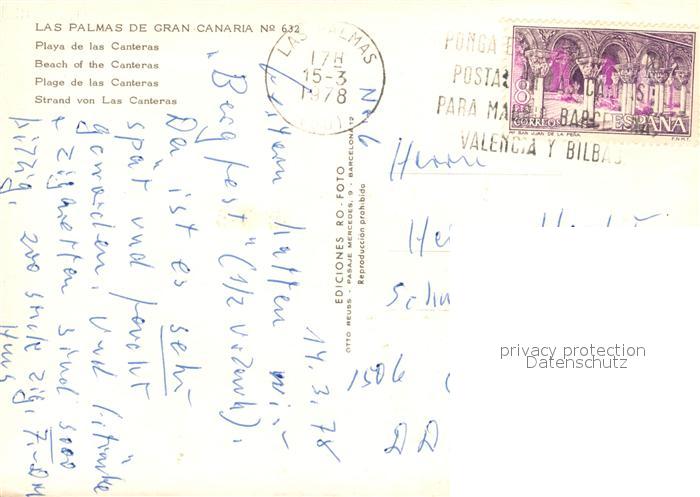 LAS PALMAS DE GRAN CANARIA Nº 632
Playa de las Canteras
Beach of the Canteras
Plage de las Canteras
Strand von Las Canteras
LAS PALMAS
17H
15-3
1978
PONGA
POSTAL
PARA MADRID BARCELONA
VALENCIA Y BILBAO
8
CORREOS
ESPAÑA
Mº SAN JUAN DE LA PEÑA
F.N.M.T.
EDICIONES RO-FOTO
OTTO REUSS - PASAJE MERCEDES, 9 - BARCELONA 12
Reproducción prohibida
Nr. 6
14.3.78
Gestern hatten wir
"Bergfest" (1/2 Urlaub).
Da ist es sehr
spät und feucht
geworden. Und
+ Zigaretten sind sooo
200 Stck Zig. 7.-DM
Herrn
1506
DD
privacy protection
Datenschutz